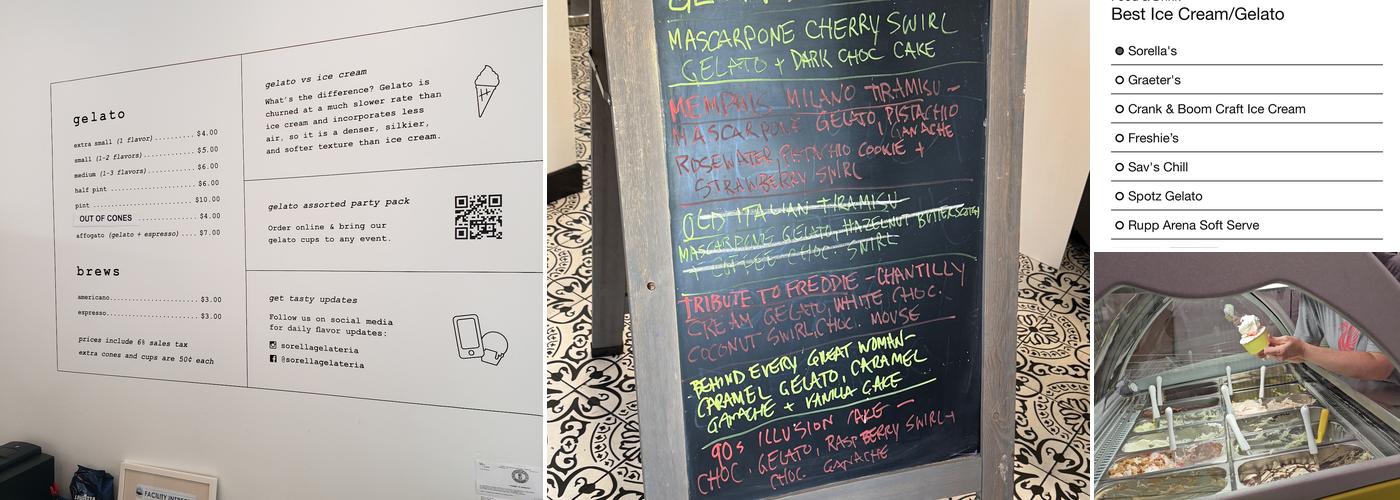 gelato
extra small (1 flavor).......... $4.00
small (1-2 flavors)............... $5.00
medium (1-3 flavors).............. $6.00
half pint ........................ $6.00
pint ............................. $10.00
OUT OF CONES ............... $4.00
affogato (gelato + espresso) .... $7.00
brews
americano........................ $3.00
espresso......................... $3.00
prices include 6% sales tax
extra cones and cups are 50¢ each
gelato vs ice cream
What's the difference? Gelato is
churned at a much slower rate than
ice cream and incorporates less
air, so it is a denser, silkier,
and softer texture than ice cream.
gelato assorted party pack
Order online & bring our
gelato cups to any event.
get tasty updates
Follow us on social media
for daily flavor updates:
sorellagelateria
@sorellagelateria
MASCARPONE CHERRY SWIRL
GELATO + DARK CHOC CAKE
MEMPHIS MILANO TIRAMISU -
MASCARPONE GELATO, PISTACHIO
GANACHE
ROSEWATER, PISTACHIO COOKIE +
STRAWBERRY SWIRL
OLD ITALIAN TIRAMISU
MASCARPONE GELATO, HAZELNUT BUTTERSCOTCH
+ COFFEE CHOC. SWIRL
TRIBUTE TO FREDDIE - CHANTILLY
CREAM GELATO, WHITE CHOC.
COCONUT SWIRL, CHOC. MOUSE
BEHIND EVERY GREAT WOMAN-
CARAMEL GELATO, CARAMEL
GANACHE + VANILLA CAKE
90s ILLUSION CAKE -
CHOC. GELATO, RASPBERRY SWIRL +
CHOC GANACHE
Best Ice Cream/Gelato
Sorella's
Graeter's
Crank & Boom Craft Ice Cream
Freshie's
Sav's Chill
Spotz Gelato
Rupp Arena Soft Serve